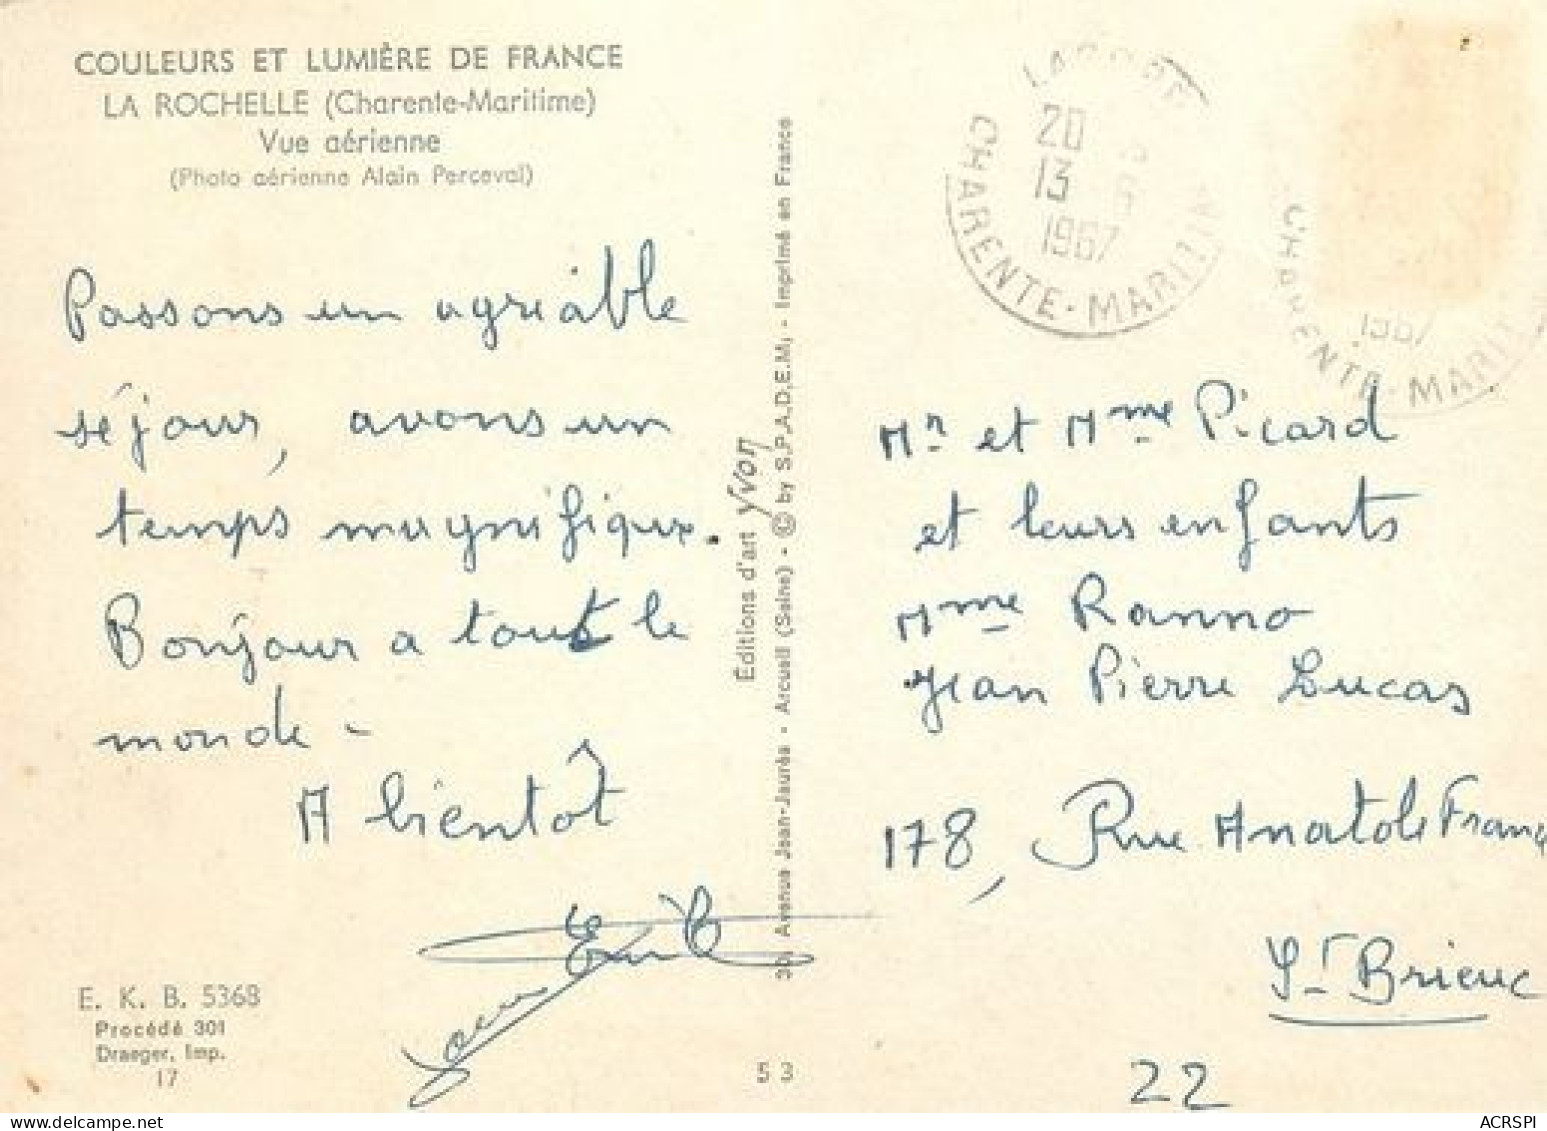 COULEURS ET LUMIÈRE DE FRANCE
LA ROCHELLE (Charente-Maritime)
Vue aérienne
(Photo aérienne Alain Perceval)
Passons un agréable
séjour, avons un
temps magnifique.
Bonjour a tout le
monde -
A bientôt
Emile
E. K. B. 5368
Procédé 301
Draeger, Imp.
17
Éditions d'art Yvon
30, Avenue Jean-Jaurès - Arcueil (Seine) - © by S.P.A.D.E.M. - Imprimé en France
53
20
13
1967
CHARENTE-MARITIM
1967
CHARENTE-MARIT
Mr et Mme Picard
et leurs enfants
Mme Ranno
Jean Pierre Lucas
178, Rue Anatole France
St Brieuc
22
ACRSPI